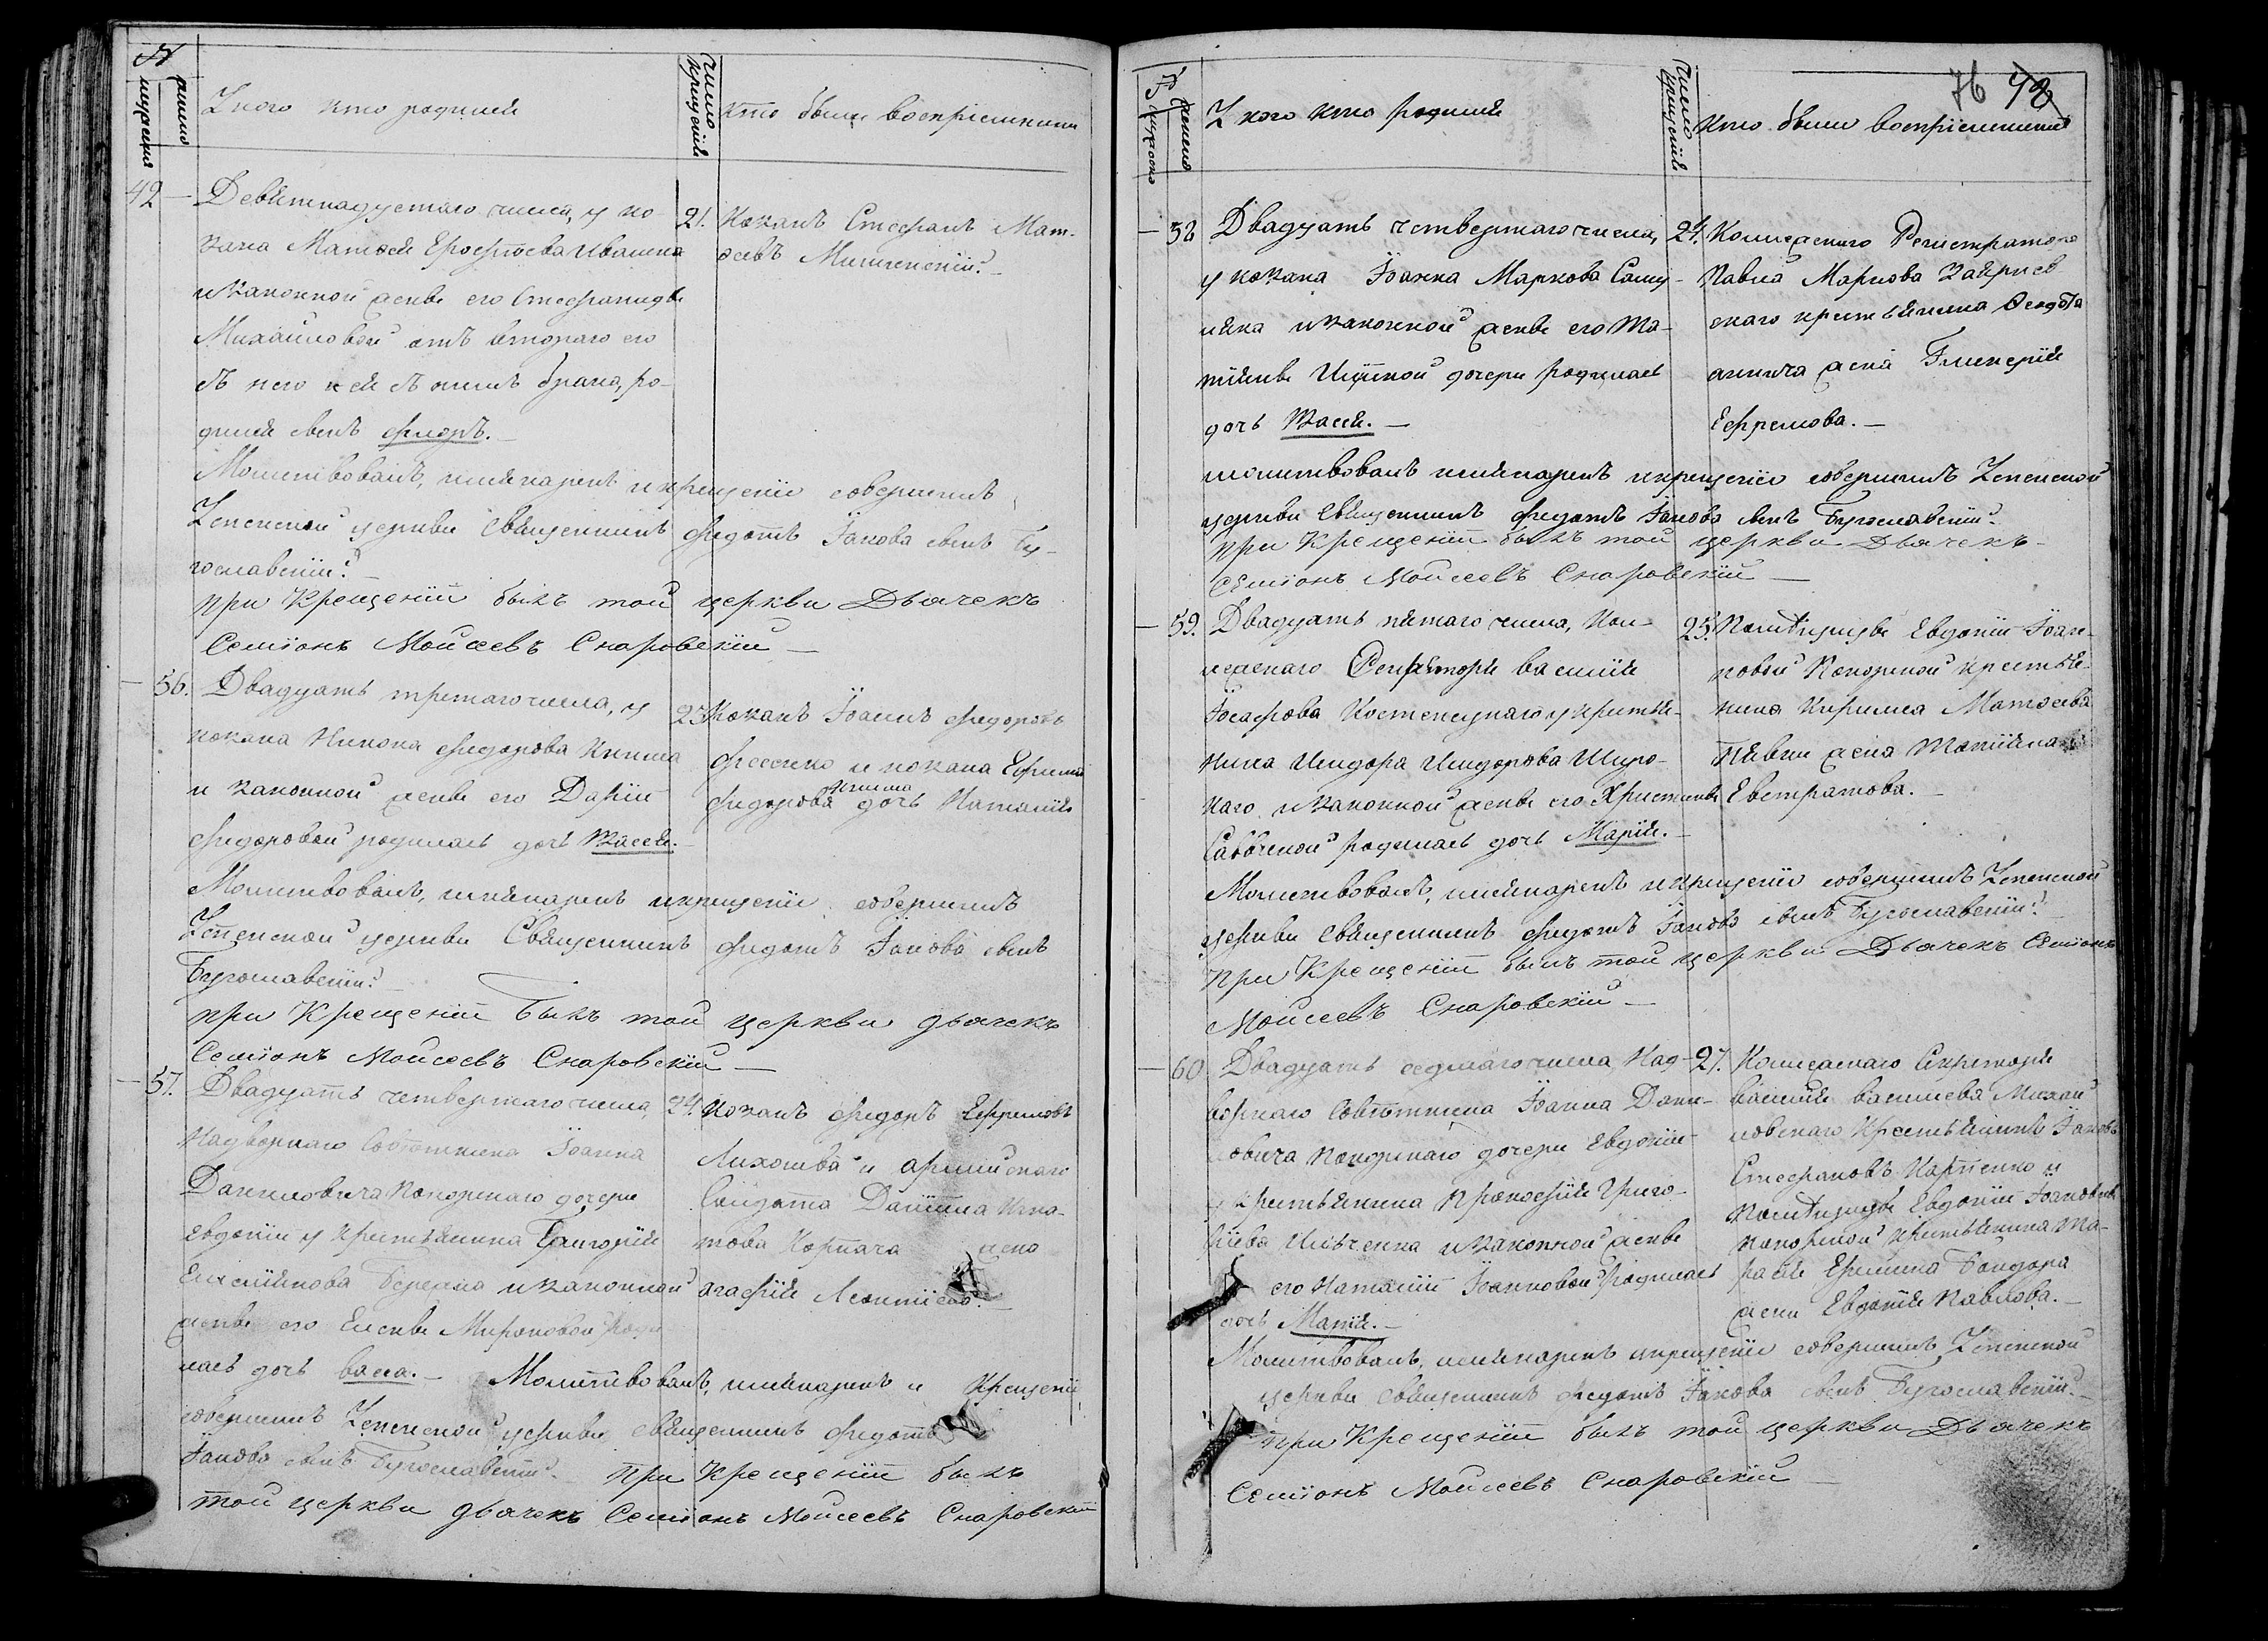 №
мужеска
женска
У кого кто родился
Число крещенія
Кто были воспріемники
42
Девятнадцетаго числа, у ко-
зака Матвея Ерофѣева Ивашена
и законной жены его Стефаниды
Михайловой отъ втораго его
съ нею и ей съ нимъ брака, ро-
дился сынъ Фиодръ.
21.
Козакъ Стефанъ Мат-
ѳеевъ
Молитвовалъ, имянарекъ и крещеніе совершилъ
Успенской церкви Священникъ Федотъ Іакова сынъ Бу-
гославскій.
При Крещеніи былъ той церкви Дьячекъ
Семіонъ Моисеевъ Снаровскій
56.
Двадцать третаго числа, у
козака Никона Федорова Книша
и законной жены его Даріи
Федоровой родилась дочь Васся.
23.
Козакъ Іоаннъ Федоровъ
Фесенко и козака Ефима
Книша
Федорова дочь Наталія
Молитвовалъ, имянарекъ и крещеніе совершилъ
Успенской церкви Священникъ Федотъ Іакова сынъ
Бугославскій.
При Крещеніи былъ той церкви дьячекъ
Семіонъ Моисеевъ Снаровскій
57.
Двадцать четвертаго числа
Надворнаго Совѣтника Іоанна
Даниловича Покорскаго дочери
Евдокіи у крестьянина Григорія
Емельянова Береж и законной
жены его Елены Мироновой роди-
лась дочь Васса.
24.
Козакъ Федоръ Ефремовъ
и армейскаго
Солдата Даніила Игна-
това жена
Агафія Леонтіева.
Молитвовалъ, имянарекъ и Крещеніе
совершилъ Успенской церкви священникъ Федотъ
Іакова сынъ Бугославскій. При Крещеніи былъ
той церкви дьячекъ Семіонъ Моисеевъ Снаровскій
76 42
№
мужеска
женска
У кого кто родился
Число крещенія
Кто были воспріемники
58
Двадцать четвертаго числа,
у козака Іоанна Маркова Саму-
ися и законной жены его Та-
тіяны дочери родилась
дочь Васся.
24.
Колежскаго Регистратора
Павла Маркова
скаго крестьянина Ѳедота
жена Гликерія
Ефремова.
Молитвовалъ имянарекъ и крещеніе совершилъ Успенской
церкви Священникъ Федотъ Іакова сынъ Бугославскій.
При Крещеніи былъ той церкви Дьячекъ
Семіонъ Моисеевъ Снаровскій
59.
Двадцать пятаго числа, Кол-
лежскаго Василія
Іосафова Костенецкаго у крестья-
нина Исидора Исидорова Широ-
каго и законной жены его Христины
Саввиной родилась дочь Марія.
25.
Евдокіи Іоан-
новой Покорской крестья-
нина Кирилла Матвеева
жена Татіяна
Евстратова.
Молитвовалъ, имянарекъ и крещеніе совершилъ Успенской
церкви Священникъ Федотъ Іакова сынъ Бугославскій.
При Крещеніи былъ той церкви Дьячекъ Семіонъ
Моисеевъ Снаровскій
60
Двадцать седмаго числа Над-
ворнаго Совѣтника Іоанна Дани-
ловича Покорскаго дочери Евдокіи
у крестьянина Прокофія Григо-
ріева Ильченка и законной жены
его Наталіи Іоанновой родилась
дочь Марія.
27.
Колежскаго Секретаря
Василія Васильева Михай
ловскаго Крестьянинъ Іаковъ
Стефановъ Карпенко и
Евдокіи Іоановны
Покорской крестьянина Та-
расія Ермина Бондара
жена Евдокія Павлова.
Молитвовалъ, имянарекъ и крещеніе совершилъ Успенской
церкви Священникъ Федотъ Іакова сынъ Бугославскій.
При Крещеніи былъ той церкви Дьячекъ
Семіонъ Моисеевъ Снаровскій